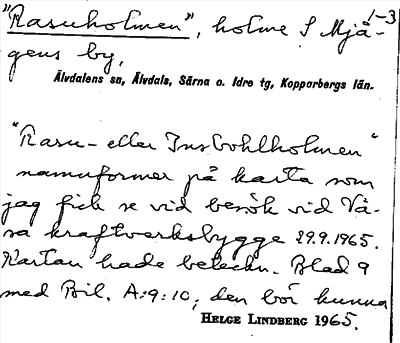 "Rasuholmen", holme S Mjå- 1-3
gens by,
Älvdalens sn, Älvdals, Särna o. Idre tg, Kopparbergs län.
"Rasu- eller Insbohlholmen"
namnformer på karta som
jag fick se vid besök vid Vå-
sa kraftverksbygge 29.9.1965.
Kartan hade beteckn. Blad 9
med Bil. A:9:10; den bör kunna
HELGE LINDBERG 1965.